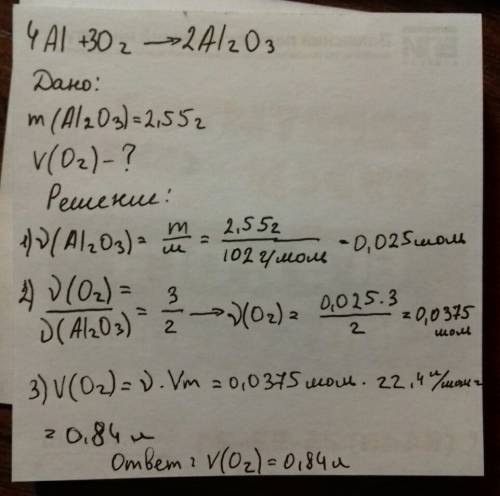 4Al + 3O₂ → 2Al₂O₃
Дано:
m(Al₂O₃) = 2,55г
V(O₂) - ?
Решение:
1) ν(Al₂O₃) = m/M = 2,55г/102 г/мол = 0,025 мол
2) ν(O₂) = / ν(Al₂O₃) = 3/2 → ν(O₂) = 0,025 · 3/2 = 0,0375 мол
3) V(O₂) = ν · Vm = 0,0375 мол · 22,4 л/мол =
= 0,84 л
Ответ: V(O₂) = 0,84 л